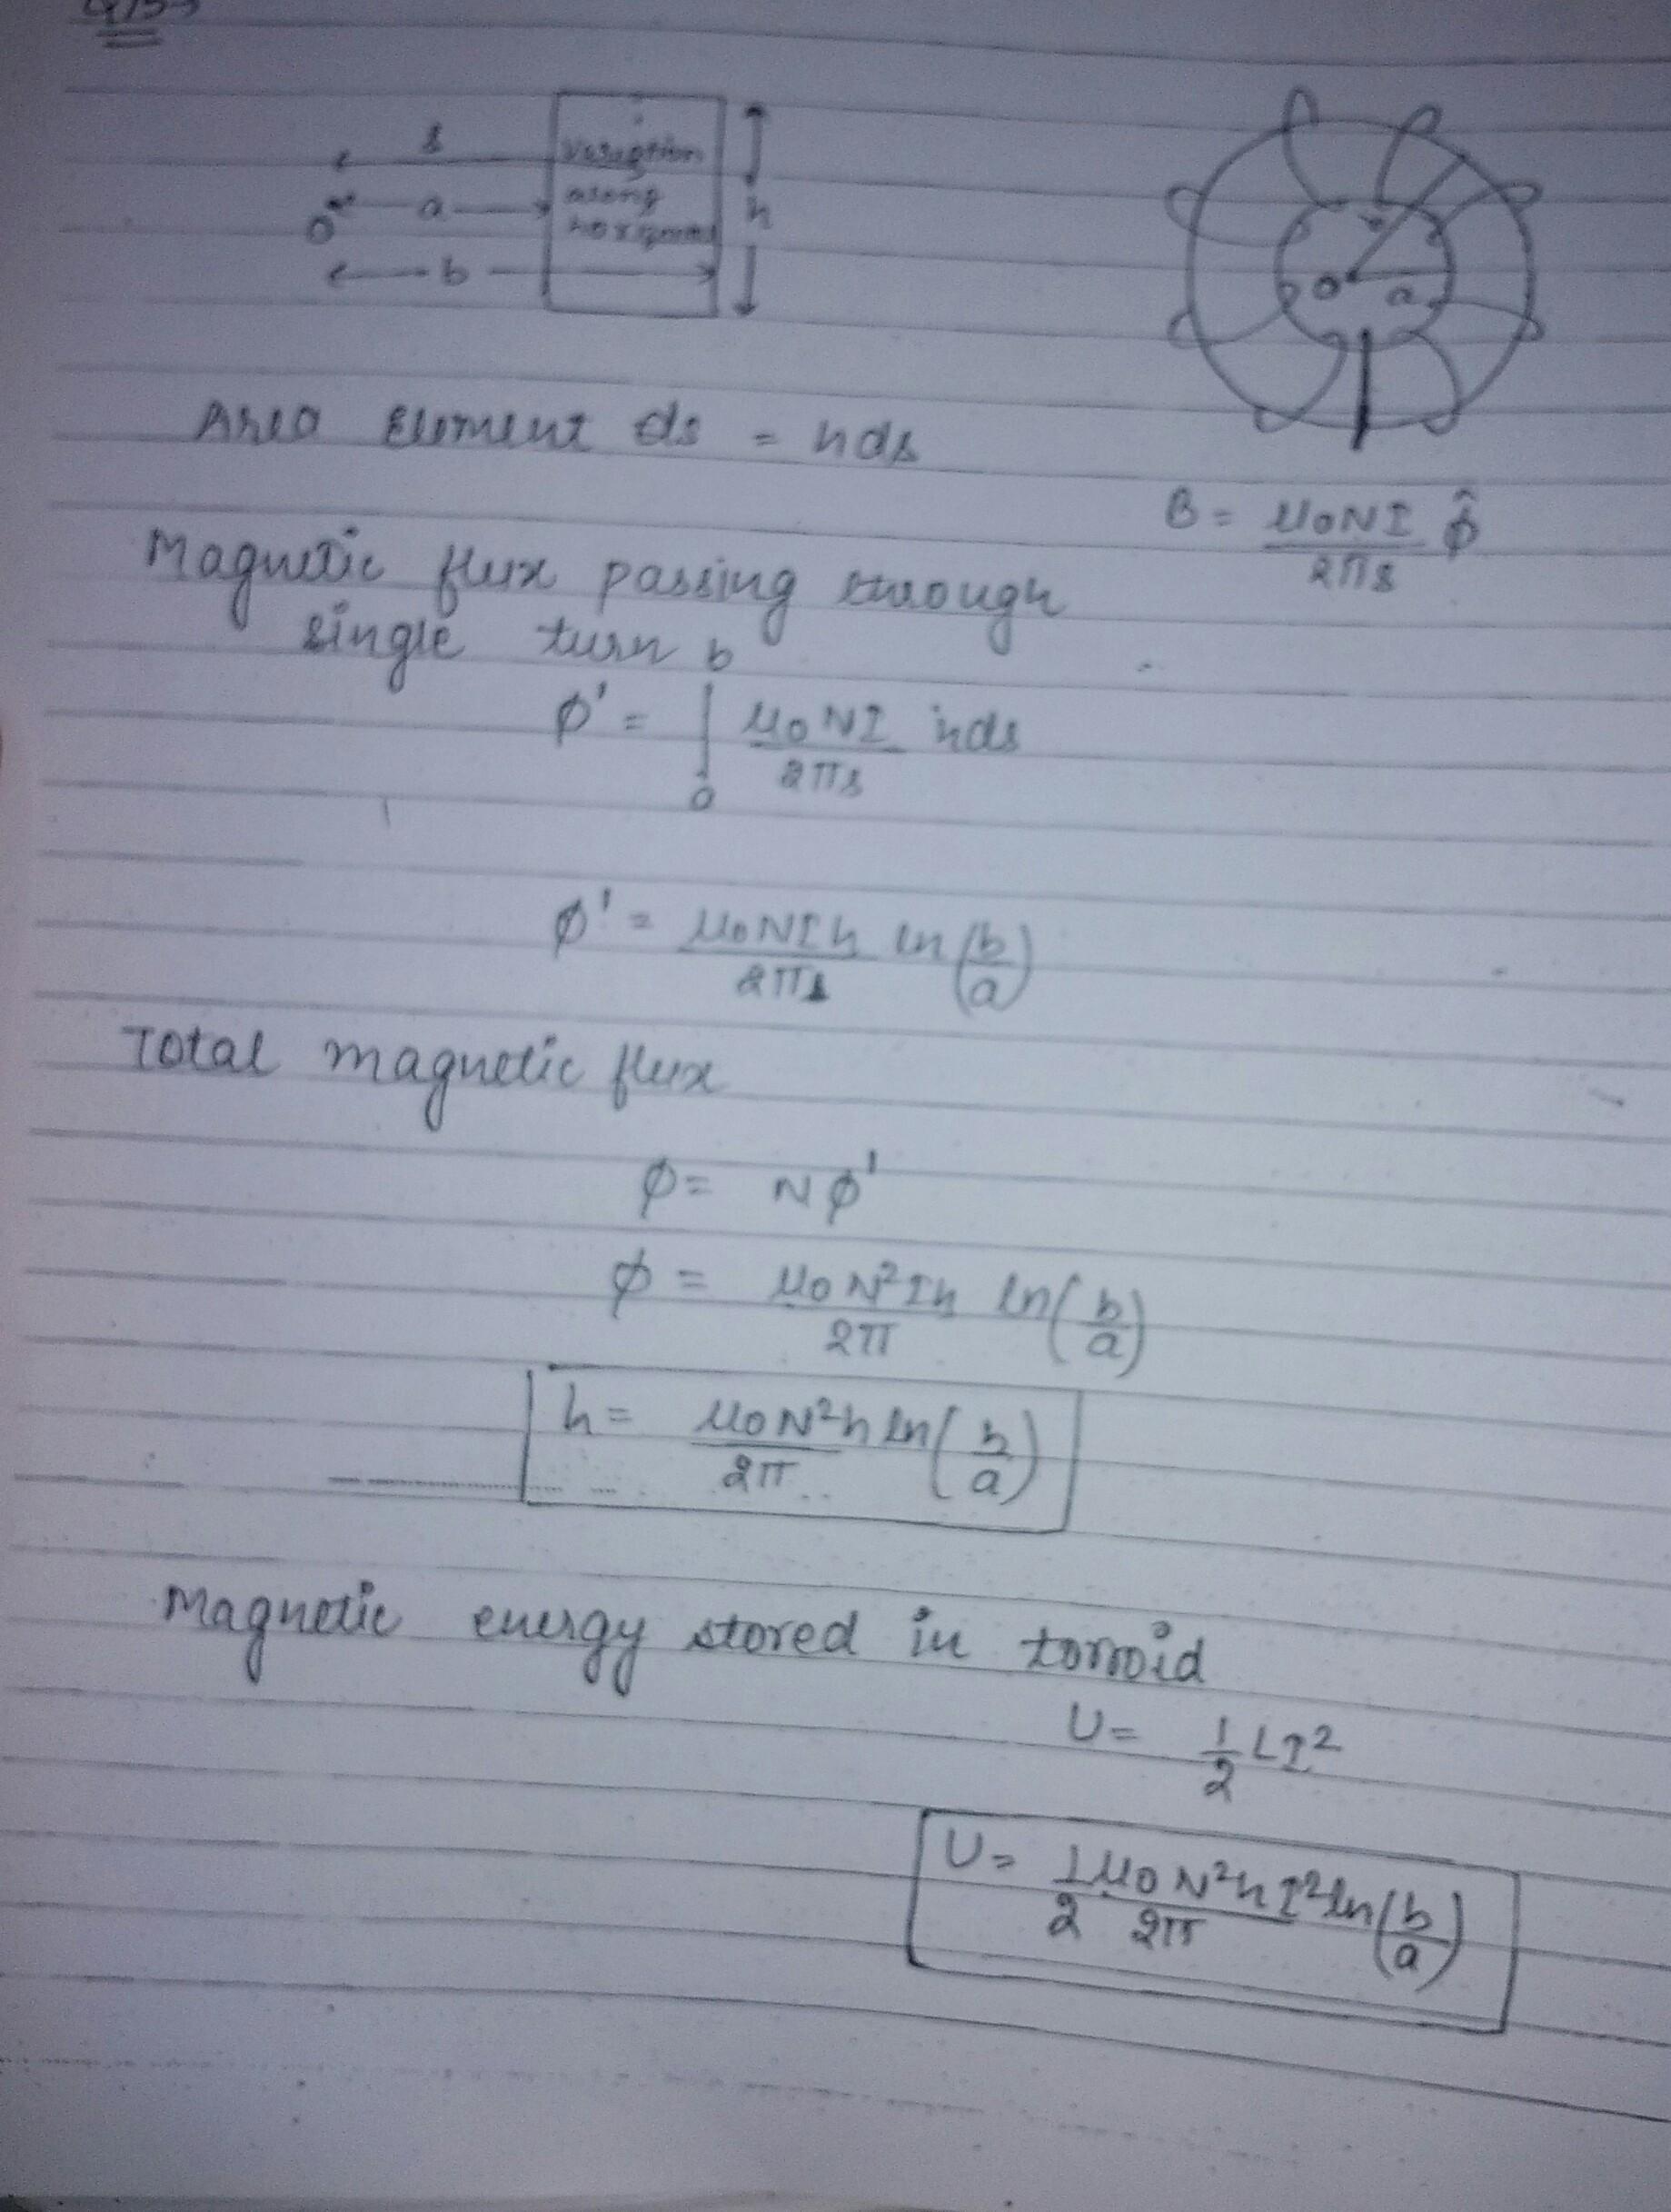 s
Variation
a
along
h
O
b
O a
Area Element ds = hds
B = μ0NI / 2πs φ̂
Magnetic flux passing through
single turn
φ' = ∫ₐᵇ μ0NI / 2πs hds
φ' = μ0NIh / 2πs ln(b/a)
Total magnetic flux
φ = Nφ'
φ = μ0N²Ih / 2π ln(b/a)
h = μ0N²h / 2π ln(b/a)
Magnetic energy stored in torroid
U = 1/2 LI²
U = 1/2 μ0N²hI² / 2π ln(b/a)